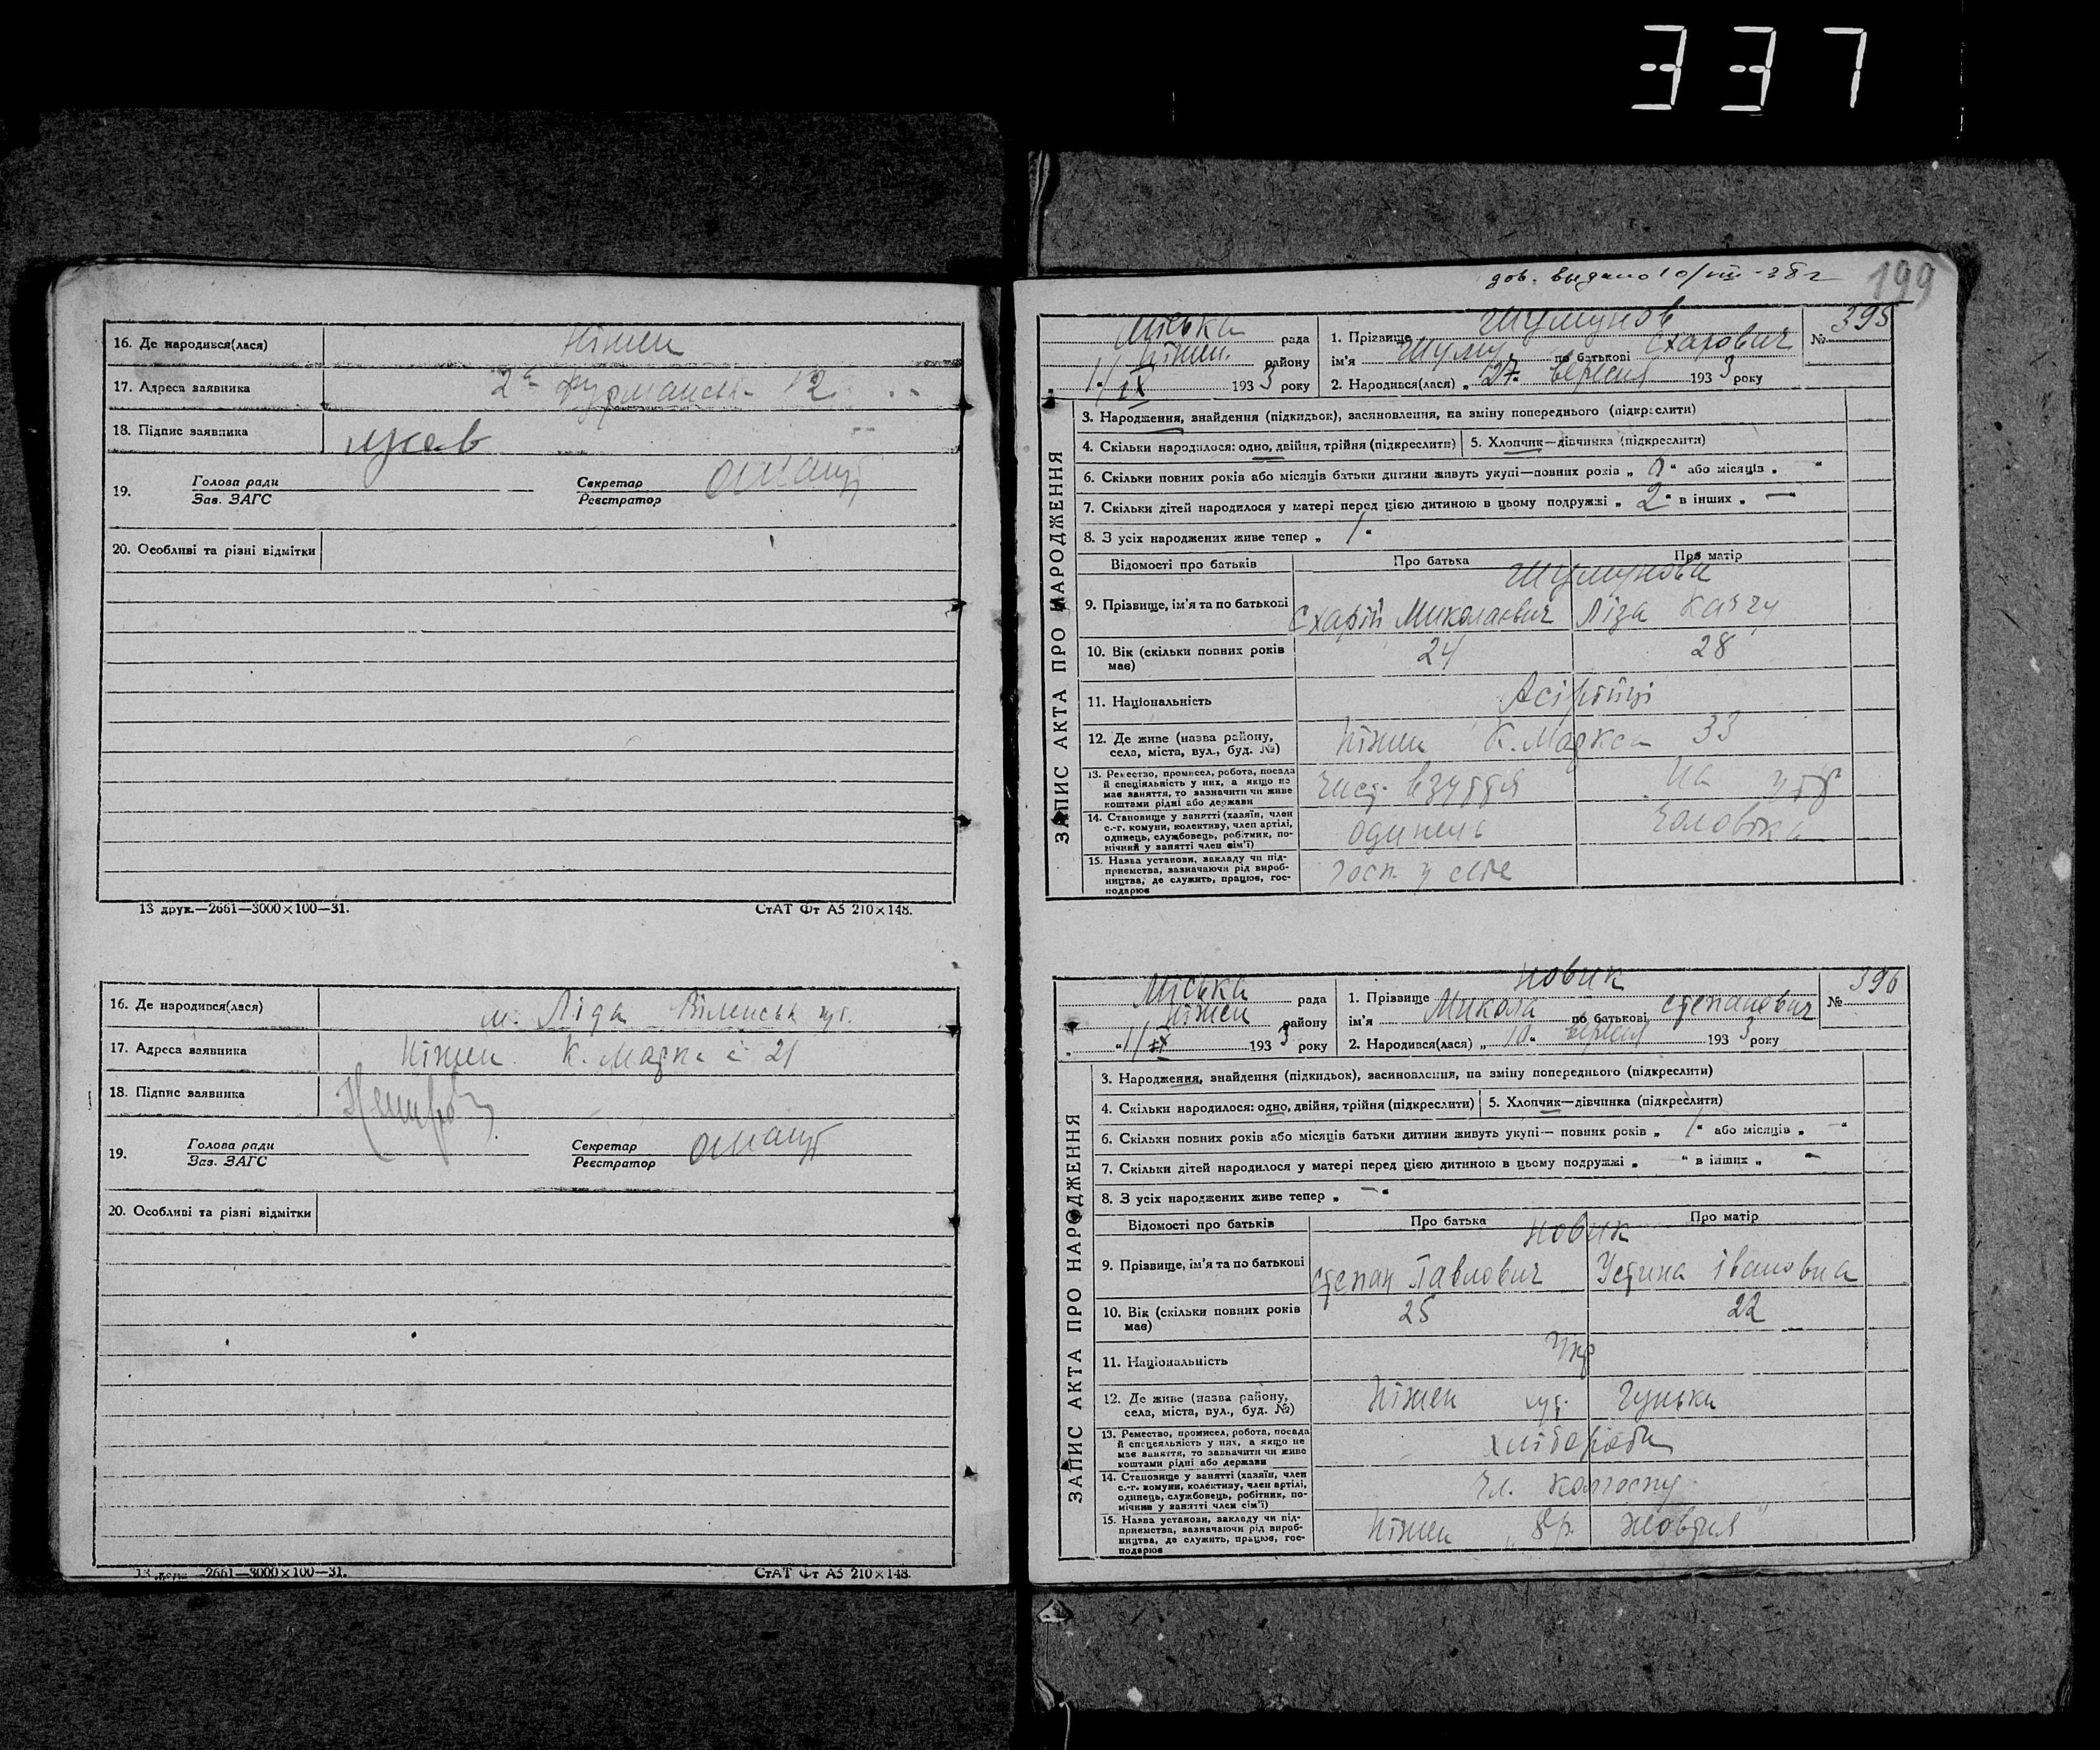 337
16. Де народився(лася) Ніжен
17. Адреса заявника 2а Фурманськ. 12
18. Підпис заявника
19. Голова ради Секретар
Зав. ЗАГС Реєстратор
20. Особливі та різні відмітки
13 друк.—2661—3000×100—31. СтАТ Фт А5 210×148.
16. Де народився(лася) м. Ліда Віленськ
17. Адреса заявника Ніжен К. Маркса 21
18. Підпис заявника
19. Голова ради Секретар
Зав. ЗАГС Реєстратор
20. Особливі та різні відмітки
13 друк.—2661—3000×100—31. СтАТ Фт А5 210×148.
дов. выдано 10/VIII-38 г
199
ЗАПИС АКТА ПРО НАРОДЖЕННЯ
Міська рада
Ніжен. району
1933 року
1. Прізвище Шумунов
ім'я Шуму по батькові Схарович
2. Народився(лася) „27" вересня 1933 року
№ 395
3. Народження, знайдення (підкидьок), засиновлення, на зміну попереднього (підкреслити)
4. Скільки народилося: одно, двійня, трійня (підкреслити) 5. Хлопчик—дівчинка (підкреслити)
6. Скільки повних років або місяців батьки дитини живуть укупі—повних років „ " або місяців „—"
7. Скільки дітей народилося у матері перед цією дитиною в цьому подружжі „2" в інших „—"
8. З усіх народжених живе тепер „1"
Відомості про батьків Про батька Про матір
Шумунови
9. Прізвище, ім'я та по батькові Схарій Миколаєвич Ліза
10. Вік (скільки повних років має) 24 28
11. Національність Асірійці
12. Де живе (назва району, села, міста, вул., буд. №) Ніжен К. Маркса 33
13. Ремество, промисел, робота, посада
й спеціяльність у них, а якщо не
має заняття, то зазначити чи живе
коштами рідні або держави
Чист. взуття на утр
14. Становище у занятті (хазяїн, член
с.-г. комуни, колективу, член артілі,
одинець, службовець, робітник, по-
мічний у занятті член сім'ї)
одинець чоловіка
15. Назва установи, закладу чи під-
приємства, зазначаючи рід вироб-
ництва, де служить, працює, гос-
подарює
госп. у себе
ЗАПИС АКТА ПРО НАРОДЖЕННЯ
Міська рада
Ніжен району
1933 року
1. Прізвище Новик
ім'я Микола по батькові Степанович
2. Народився(лася) „10" вересня 1933 року
№ 396
3. Народження, знайдення (підкидьок), засиновлення, на зміну попереднього (підкреслити)
4. Скільки народилося: одно, двійня, трійня (підкреслити) 5. Хлопчик—дівчинка (підкреслити)
6. Скільки повних років або місяців батьки дитини живуть укупі—повних років „1" або місяців „—"
7. Скільки дітей народилося у матері перед цією дитиною в цьому подружжі „ " в інших „—
8. З усіх народжених живе тепер „—"
Відомості про батьків Про батька Про матір
Новик
9. Прізвище, ім'я та по батькові Степан Павлович Устина Івановна
10. Вік (скільки повних років має) 25 22
11. Національність Укр
12. Де живе (назва району, села, міста, вул., буд. №) Ніжен хут. Гуньки
13. Ремество, промисел, робота, посада
й спеціяльність у них, а якщо не
має заняття, то зазначити чи живе
коштами рідні або держави
хлібороби
14. Становище у занятті (хазяїн, член
с.-г. комуни, колективу, член артілі,
одинець, службовець, робітник, по-
мічний у занятті член сім'ї)
чл. колгоспу
15. Назва установи, закладу чи під-
приємства, зазначаючи рід вироб-
ництва, де служить, працює, гос-
подарює
Ніжен „8 р. Жовтня"